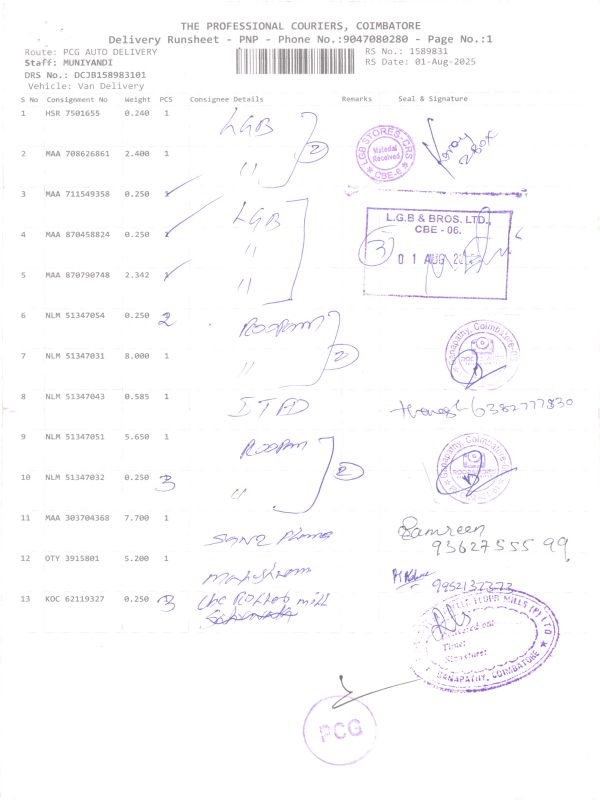 THE PROFESSIONAL COURIERS, COIMBATORE
Delivery Runsheet - PNP - Phone No.:9047080280 - Page No.:1
Route: PCG AUTO DELIVERY
RS No.: 1589831
Staff: MUNIYANDI
RS Date: 01-Aug-2025
DRS No.: DCJB158983101
Vehicle: Van Delivery
S No Consignment No Weight PCS Consignee Details Remarks Seal & Signature
1 HSR 7501655 0.240 1 LGB
2 MAA 708626861 2.400 1 " 2
L G B STORES-CRS
Material
Received
CBE-6
3 MAA 711549358 0.250 1
LGB
4 MAA 870458824 0.250 1 "
5 MAA 870790748 2.342 1 "
L.G.B & BROS. LTD.,
CBE - 06.
3 01 AUG
6 NLM 51347054 0.250 2 ROOPAM
7 NLM 51347031 8.000 1 " 2
Ganapathy, Coimbatore
8 NLM 51347043 0.585 1 6382777830
9 NLM 51347051 5.650 1 ROOPAM
10 NLM 51347032 0.250 3 " 2
Ganapathy, Coimbatore
11 MAA 303704368 7.700 1
Samreen
93627555 99
12 OTY 3915801 5.200 1
9952137373
13 KOC 62119327 0.250 3 mill
FLOUR MILLS (P) LTD
Time:
Signature:
GANAPATHY, COIMBATORE
PCG